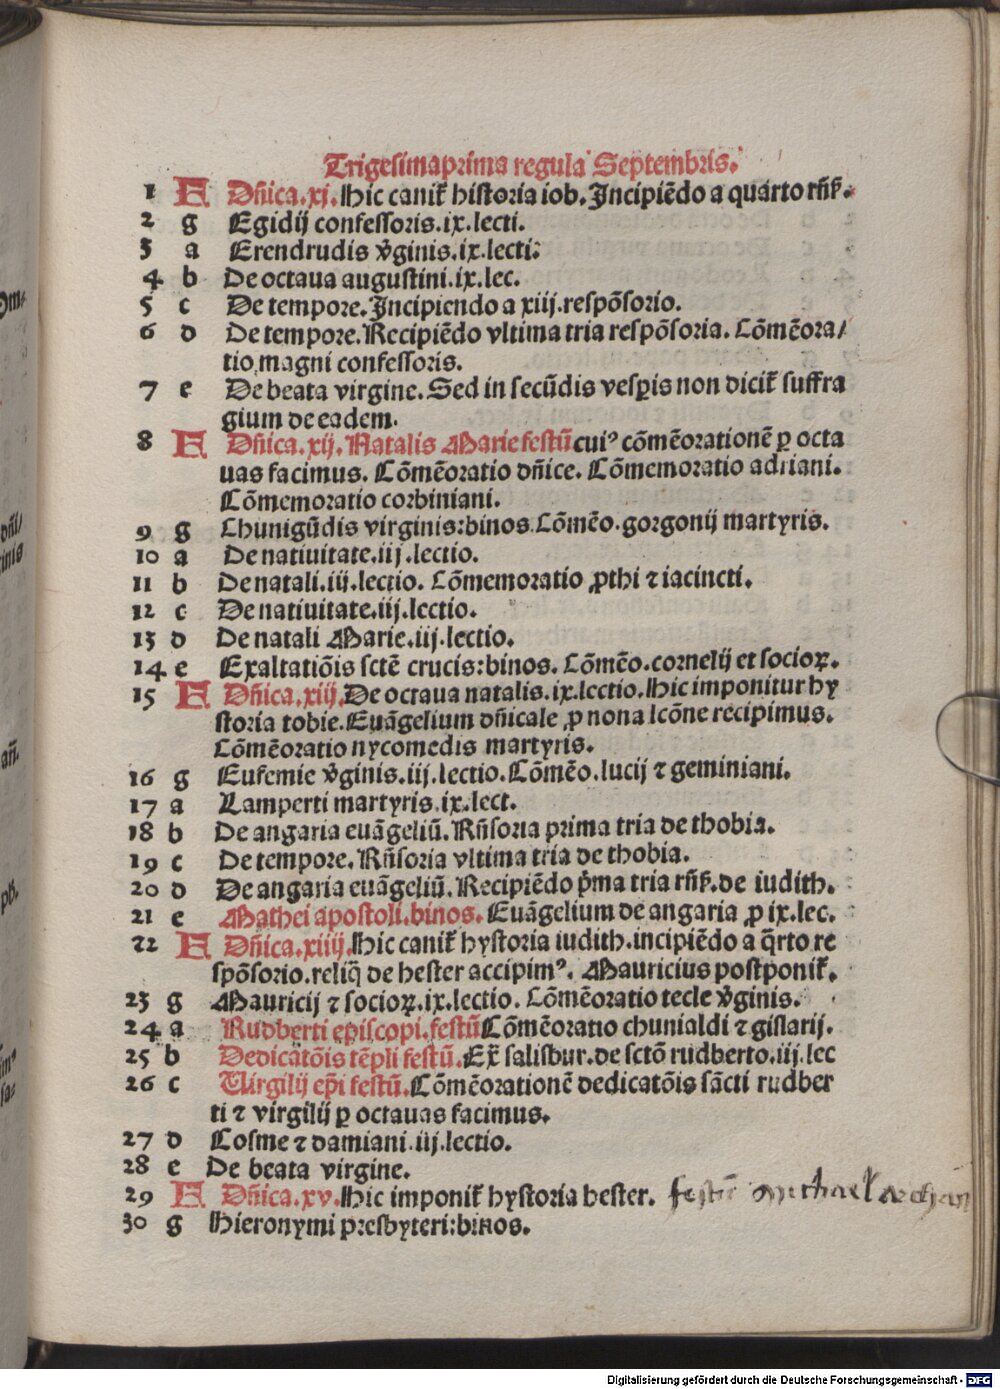 Trigesimaprima regula Septembris.
1 F Dñica.xj. Hic caniť historia iob. Incipiēdo a quarto rñſ.
2 g Egidij confessoris.ix.lecti.
3 a Erendrudis v̄ginis.ix.lecti.
4 b De octaua augustini.ix.lec.
5 c De tempore. Incipiendo a xiij.respōsorio.
6 d De tempore. Recipiēdo vltima tria respōsoria. Cōmēora/
tio magni confessoris.
7 e De beata virgine. Sed in secūdis vesꝑis non diciť suffra
gium de eadem.
8 F Dñica.xij. Natalis Marie festū cuiꝰ cōmēorationē ꝑ octa
uas facimus. Cōmēoratio dñice. Cōmemoratio adriani.
Cōmemoratio corbiniani.
9 g Chunigūdis virginis: binos. Cōmēo. gorgonij martyris.
10 a De natiuitate.iij.lectio.
11 b De natali.iij.lectio. Cōmemoratio ꝓthi ⁊ iacincti.
12 c De natiuitate.iij.lectio.
13 d De natali Marie.iij.lectio.
14 e Exaltatiōis sctē crucis: binos. Cōmēo. cornelij et socioꝝ.
15 F Dñica.xiij. De octaua natalis.ix.lectio. Hic imponitur hy
storia tobie. Euāgelium dñicale ꝓ nona lcōne recipimus.
Cōmēoratio nycomedis martyris.
16 g Eufemie v̄ginis.iij.lectio. Cōmēo. lucij ⁊ geminiani.
17 a Lamperti martyris.ix.lect.
18 b De angaria euāgeliū. Rñsoria prima tria de thobia.
19 c De tempore. Rñsoria vltima tria de thobia.
20 d De angaria euāgeliū. Recipiēdo p̄ma tria rñſ. de iudith.
21 e Mathei apostoli. binos. Euāgelium de angaria ꝓ ix.lec.
22 F Dñica.xiiij. Hic caniť hystoria iudith. incipiēdo a q̄rto re
spōsorio. reliq̄ de hester accipimꝰ. Mauricius postponiť.
23 g Mauricij ⁊ socioꝝ.ix.lectio. Cōmēoratio tecle v̄ginis.
24 a Rudberti episcopi. festū Cōmēoratio chunialdi ⁊ gislarij.
25 b Dedicatōis tēpli festū. Ex̄ salisbur. de sctō rudberto.iij.lec
26 c Virgilij ep̄i festū. Cōmēorationē dedicatōis sācti rudber
ti ⁊ virgilij ꝑ octauas facimus.
27 d Cosme ⁊ damiani.iij.lectio.
28 e De beata virgine.
29 F Dñica.xv. Hic imponiť hystoria hester. festū michael archan
30 g Hieronymi presbyteri: binos.
Om-
dñi/
inis
añ.
pß.
im-
sa-
Digitalisierung gefördert durch die Deutsche Forschungsgemeinschaft - DFG